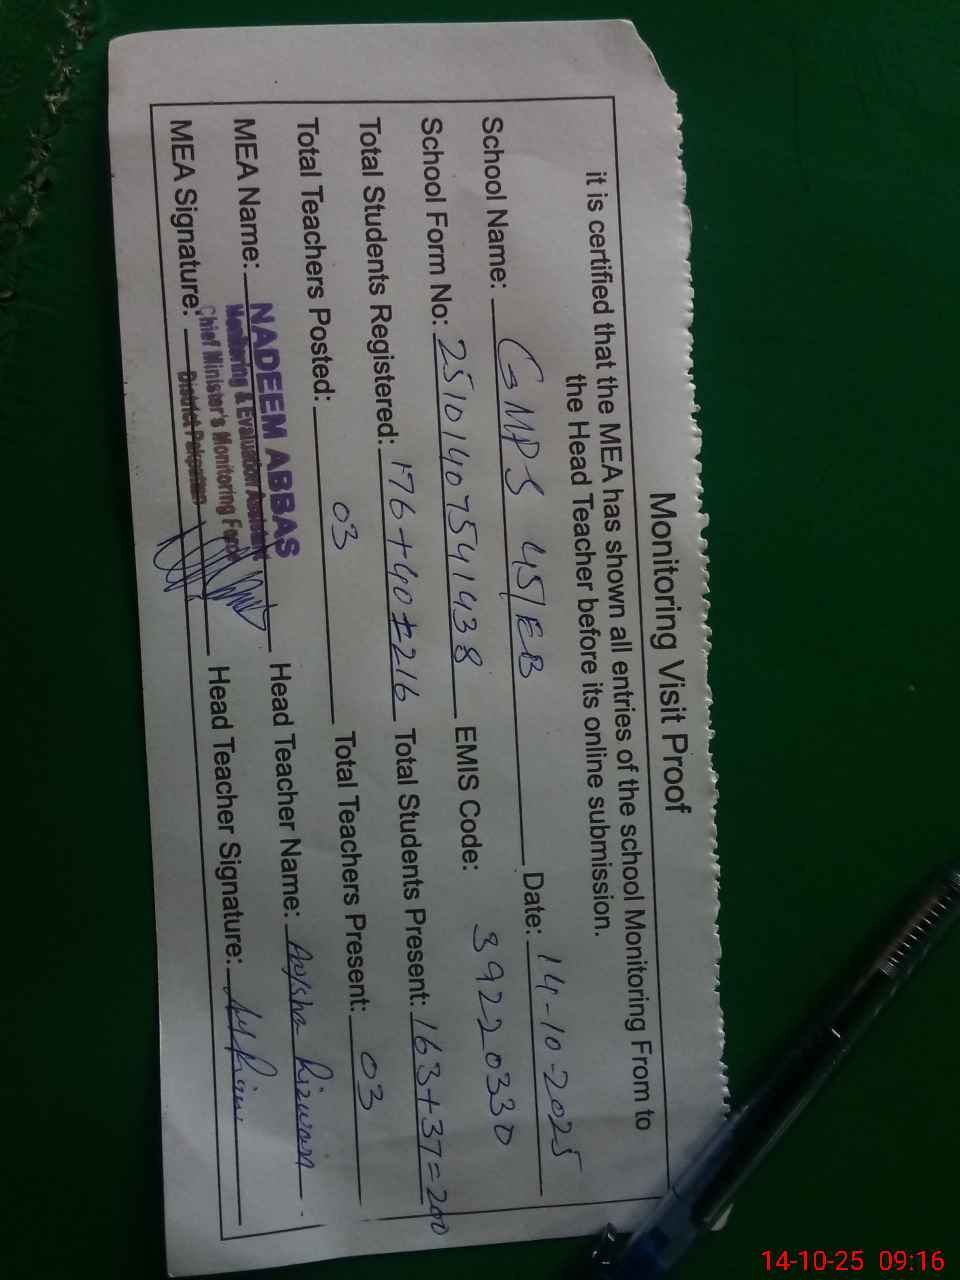 Monitoring Visit Proof
it is certified that the MEA has shown all entries of the school Monitoring From to
the Head Teacher before its online submission.
School Name: GMPS 45/EB Date: 14-10-2025
School Form No: 25101407541438 EMIS Code: 39220330
Total Students Registered: 176+40=216 Total Students Present: 163+37=200
Total Teachers Posted: 03 Total Teachers Present: 03
MEA Name: NADEEM ABBAS Head Teacher Name: Ayisha Rizwan
Monitoring & Evaluation Assistant
Chief Minister's Monitoring Force
District Pakpattan
MEA Signature: Head Teacher Signature:
14-10-25 09:16